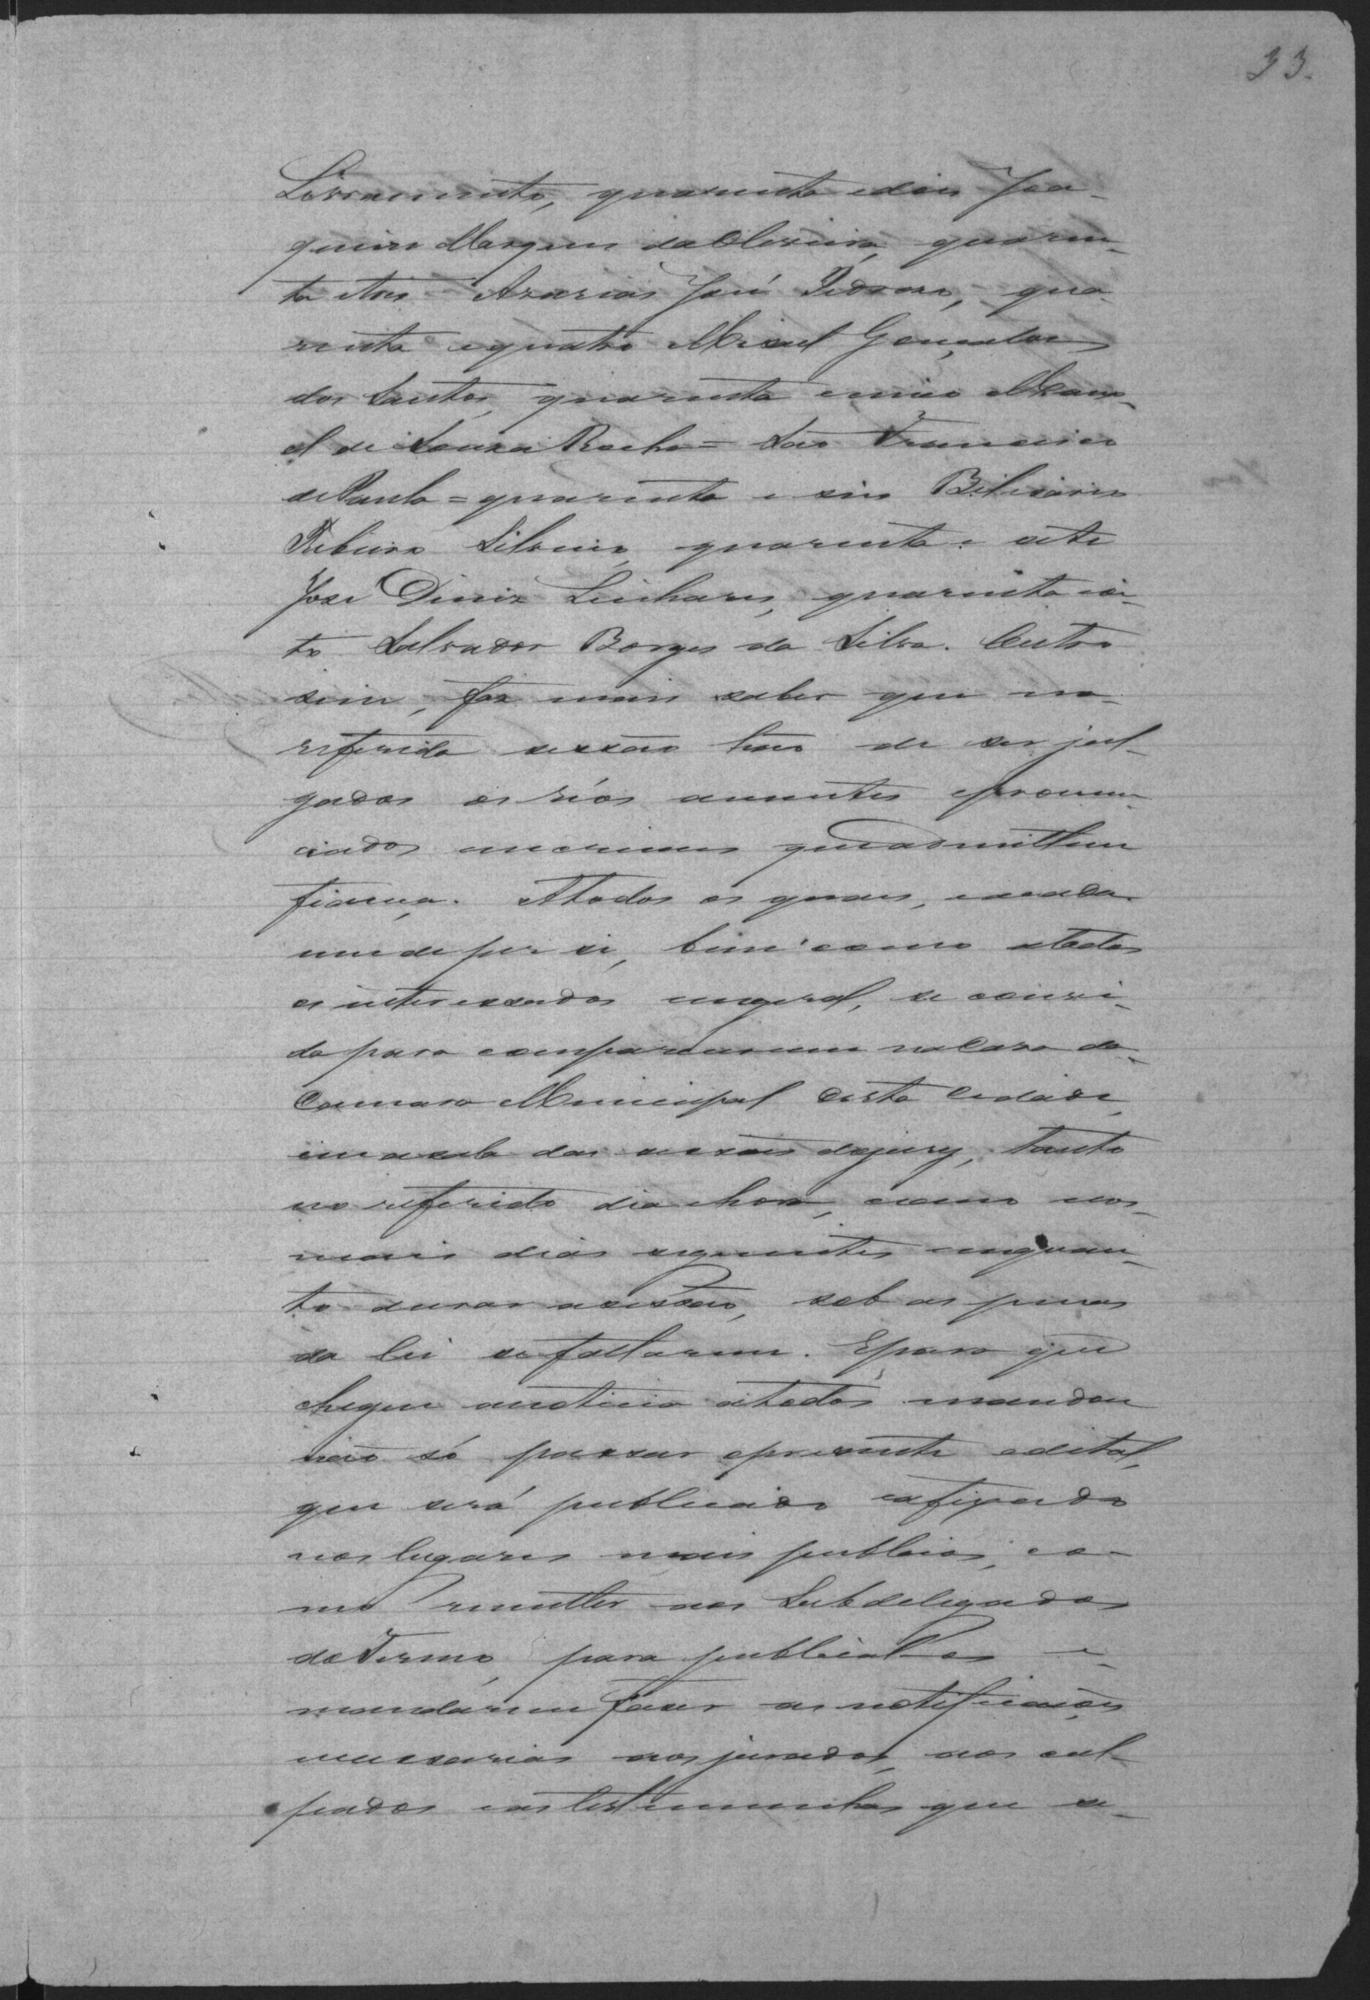 33.
Livramento, quarenta edois Joa-
quim Marques de Oliveira, quaren-
ta etres Azarias José Pedroso, qua-
renta equatro Mizael Gonçalves
dos Santos, quarenta ecinco Mano-
el de Souza Rocha = São Francisco
de Paula = quarenta e seis Bilizario
Ribeiro Silveira quarenta e sete
José Diniz Linhares, quarenta eoi-
to Salvador Borges da Silva. Outro
sim, faz mais saber que na
referida sessão hão de ser jul-
gados os réos auzentes epronun-
ciados emcrimes queadmittem
fiança. Atodos os quaes, ecada
umdeper si, bem como atodos
os interessados emgeral, se convi-
da para comparecerem naCasa da
Camara Municipal desta Cidade,
emasala das sessões dojury, tanto
no referido dia ehora, como nos
mais dias seguintes emquan-
to durar asessão, sob as penas
da lei se faltarem. Epara que
chegue anoticia atodos mandou
não só passar opresente edital,
que será publicado eafixado
nos lugares mais publicos, co-
mo remetter aos Subdelegados
doTermo, para publical-os e
mandarem fazer as notificações
necessarias aosjurados, aos cul-
pados eastestemunhas que se